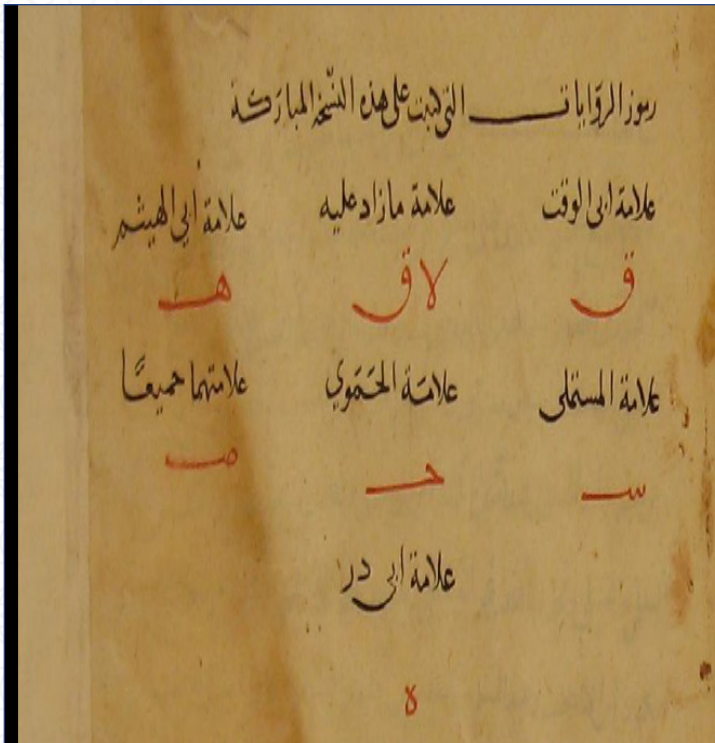 رموز الروايات التي كتبت على هذه النسخة المباركة
علامة ابى الوقت علامة مازاد عليه علامة أبي الهيثم
ق لا ق هـ
علامة المستملى علامة الحَمَوي علامتهما جميعًا
سـ حـ صـ
علامة ابى در